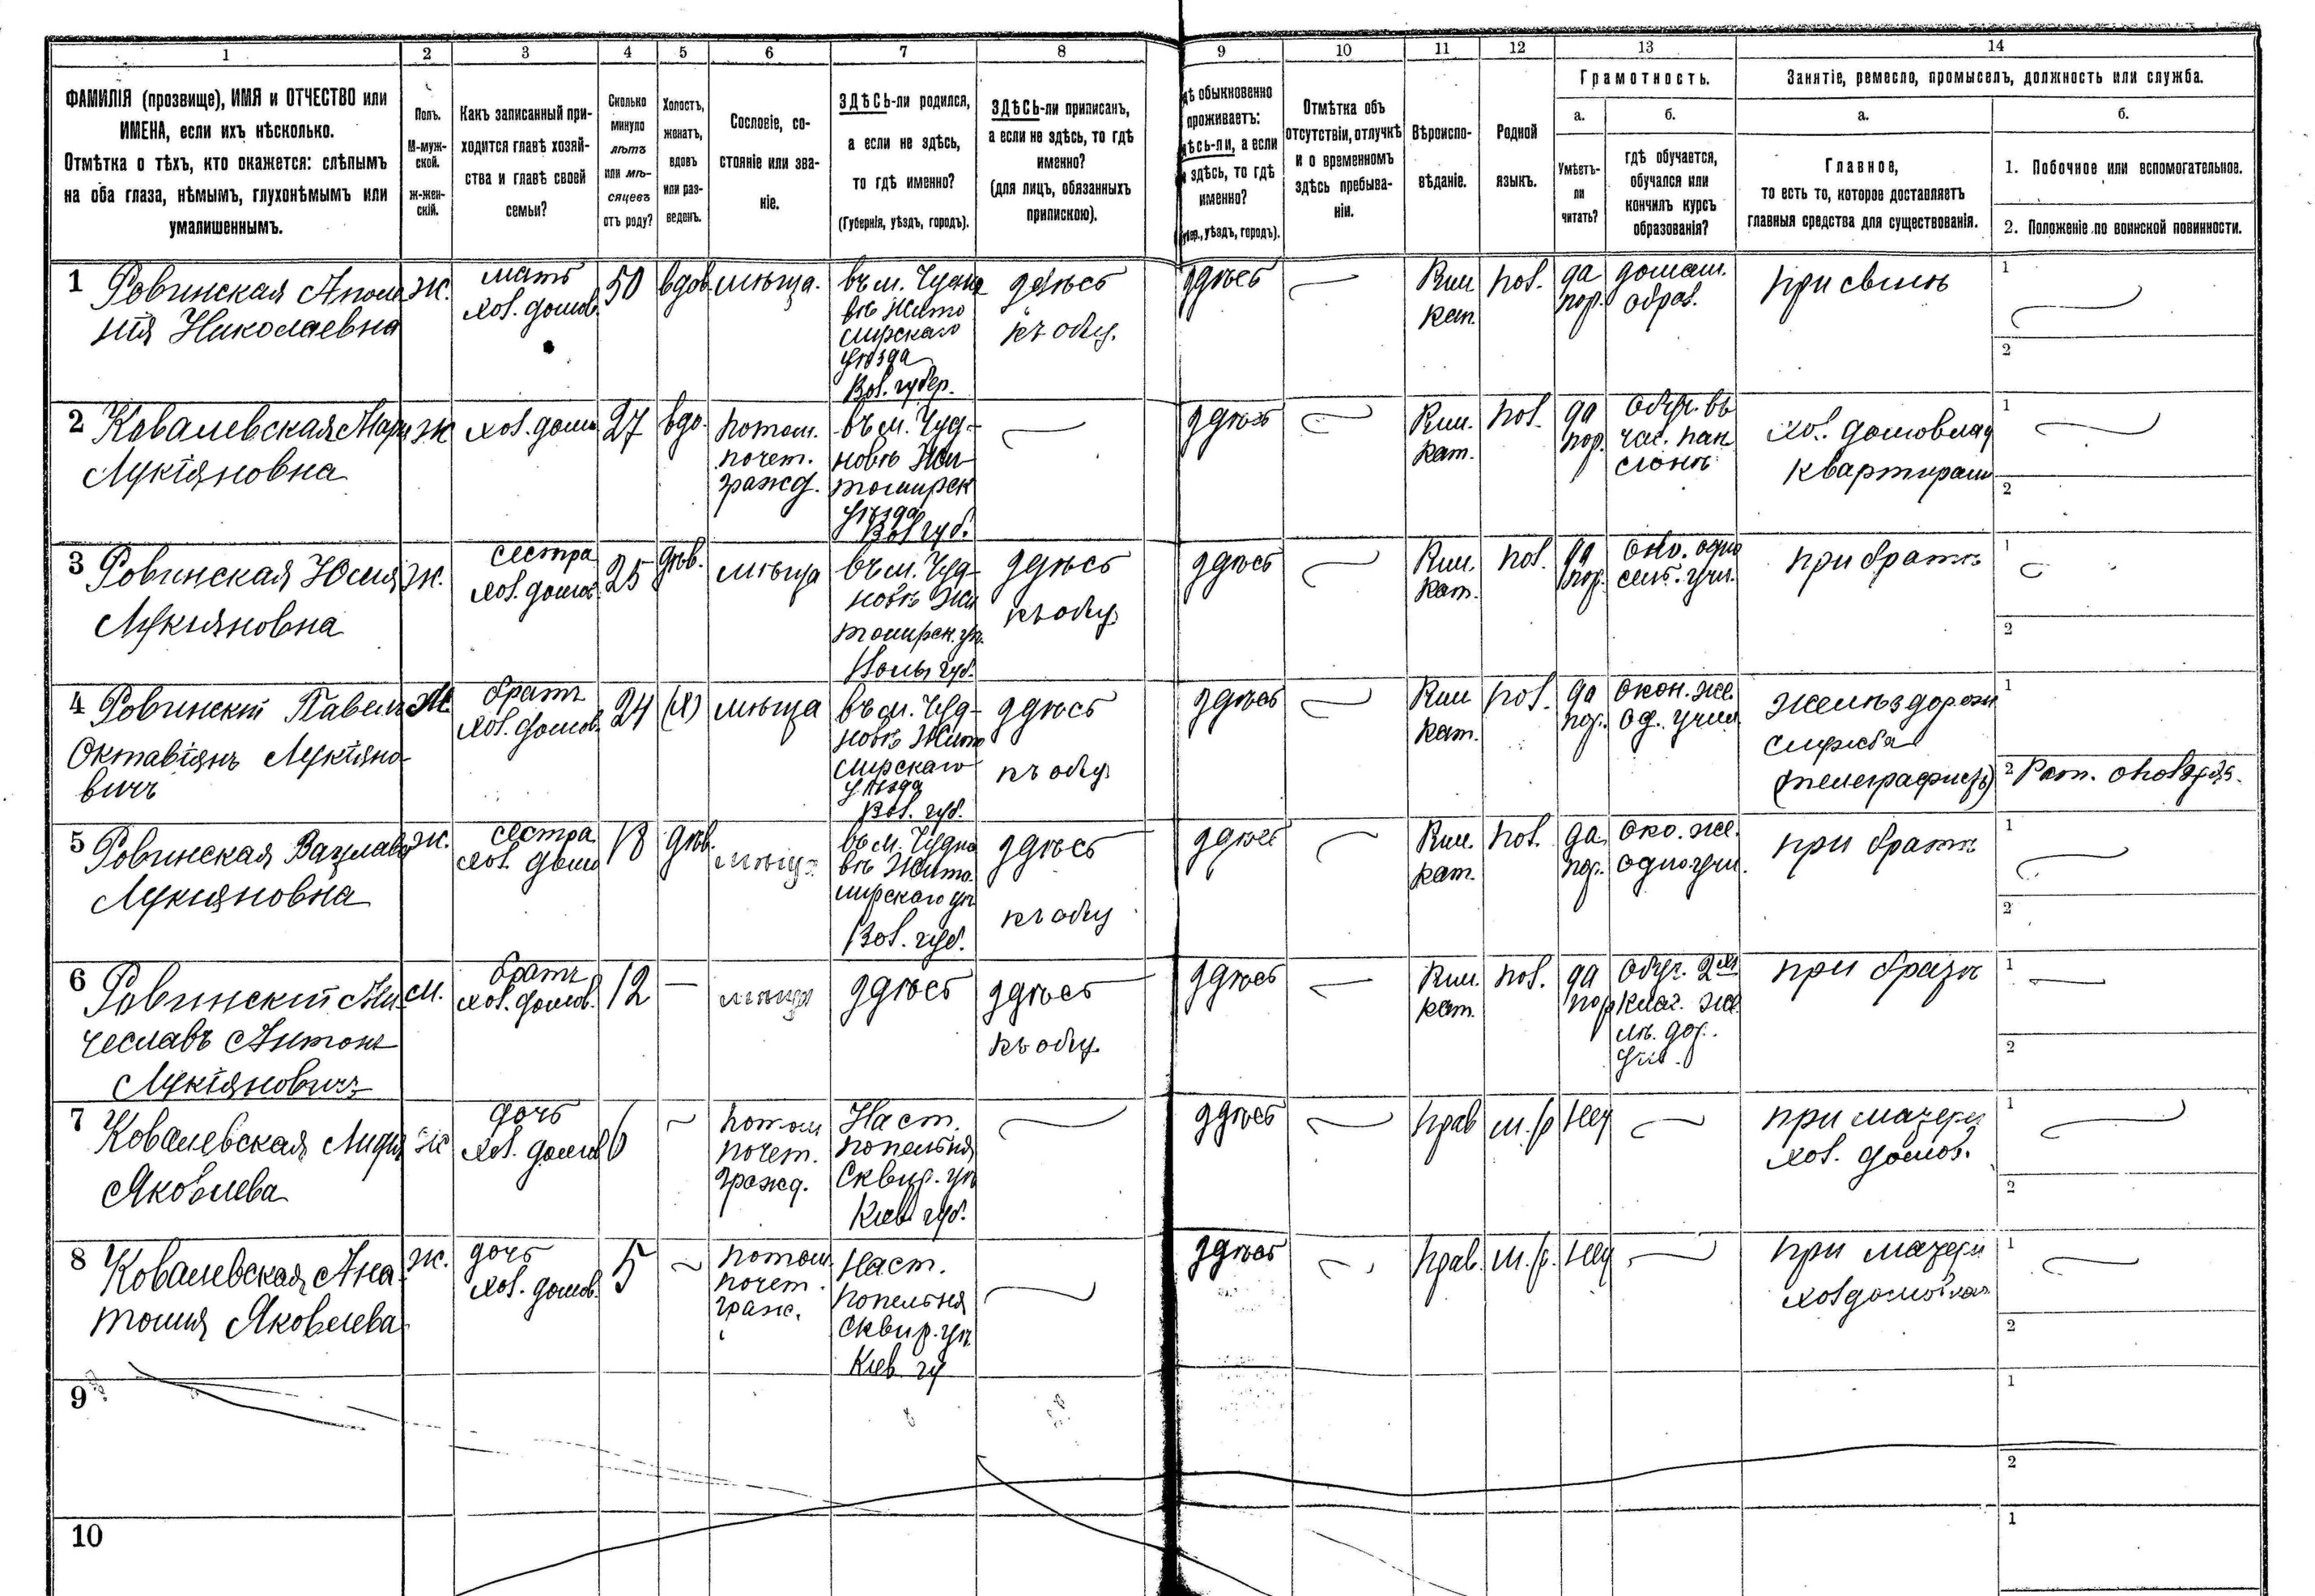 1 2 3 4 5 6 7 8 9 10 11 12 13 14
ФАМИЛІЯ (прозвище), ИМЯ и ОТЧЕСТВО или
ИМЕНА, если ихъ нѣсколько.
Отмѣтка о тѣхъ, кто окажется: слѣпымъ
на оба глаза, нѣмымъ, глухонѣмымъ или
умалишеннымъ.
Полъ.
М-муж-
ской.
ж-жен-
скій.
Какъ записанный при-
ходится главѣ хозяй-
ства и главѣ своей
семьи?
Сколько
минуло
лѣтъ
или мѣ-
сяцевъ
отъ роду?
Холостъ,
женатъ,
вдовъ
или раз-
веденъ.
Сословіе, со-
стояніе или зва-
ніе.
ЗДѢСЬ-ли родился,
а если не здѣсь,
то гдѣ именно?
(Губернія, уѣздъ, городъ).
ЗДѢСЬ-ли приписанъ,
а если не здѣсь, то гдѣ
именно?
(для лицъ, обязанныхъ
припискою).
дѣ обыкновенно
проживаетъ:
здѣсь-ли, а если
здѣсь, то гдѣ
именно?
уѣздъ, городъ).
Отмѣтка объ
отсутствіи, отлучкѣ
и о временномъ
здѣсь пребыва-
ніи.
Вѣроиспо-
вѣданіе.
Родной
языкъ.
Грамотность.
а. б.
Умѣетъ-
ли
читать?
гдѣ обучается,
обучался или
кончилъ курсъ
образованія?
Занятіе, ремесло, промыселъ, должность или служба.
а. б.
Главное,
то есть то, которое доставляетъ
главныя средства для существованія.
1. Побочное или вспомогательное.
2. Положеніе по воинской повинности.
1 Ровинская Аполо
нія Николаевна
ж.
мать
хоз. домов.
50
вдов.
мѣща.
въ м. Чудно
вѣ Жито
мирскаго
уѣзда
Вол. губер.
здѣсь
къ общ.
здѣсь
Рим
кат.
пол.
да
пол.
домаш.
образ.
при сынѣ
1
2
2 Ковалевская Мари
Лукіяновна
ж
хоз. домо
27
вдо.
потом.
почет.
гражд.
въ м. Чуд-
новѣ Жи
томирск
уѣзда
Вол губ.
здѣсь
Рим.
кат.
пол.
да
пол.
обуч. въ
час. пан
сіонѣ
хоз. домовлад
квартирами
1
2
3 Ровинская Юлия
Лукіяновна
ж.
сестра
хоз. домов.
25
дѣв.
мѣща
въ м. Чуд-
новѣ Жи
томирск. уѣ.
Волы губ.
здѣсь
къ общ
здѣсь
Рим.
кат.
пол.
да
пол.
при братѣ
1
2
4 Ровинскій Павелъ
Октавіянъ Лукіяно
вичъ
братъ
хоз. домов.
24
(х)
мѣща
въ м. Чуд-
новѣ Жито
мирскаго
уѣзда
Вол. губ.
здѣсь
къ общ
здѣсь
Рим
кат.
пол.
да
пол.
окон. же.
од. учил
желѣздорожн
служба
(телеграфистъ)
1
2
5 Ровинская Вацлава
Лукіяновна
ж.
сестра
хоз. домо
18
дѣв.
мѣща
въ м. Чудно
вѣ Жито
мирскаго уѣ
Вол. губ.
здѣсь
къ общ
здѣсь
Рим.
кат.
пол.
да
пол.
око. же.
одно. учи.
при братѣ
1
2
6 Ровинскій Ми
чеславъ Антонъ
Лукіяновичъ
м.
братъ
хоз. домов.
12
мѣща
здѣсь
здѣсь
къ общ.
здѣсь
Рим.
кат.
пол.
да
пол
обуч. 2хъ
клас. же
лѣ. дор.
учи.
при братѣ
1
2
7 Ковалевская Лидия
Яковлева
ж
дочь
хоз. домов
6
потом
почет.
гражд.
На ст.
попельня
Сквир. уѣ
Кіев. губ.
здѣсь
прав
м./р
при матери
хоз. домов.
1
2
8 Ковалевская Ана
толия Яковлева
ж.
дочь
хоз. домов.
5
потом.
почет.
граж.
На ст.
попельня
Сквир. уѣ.
Кіев гу
здѣсь
прав.
м./р.
при матери
1
2
9
1
2
10
1